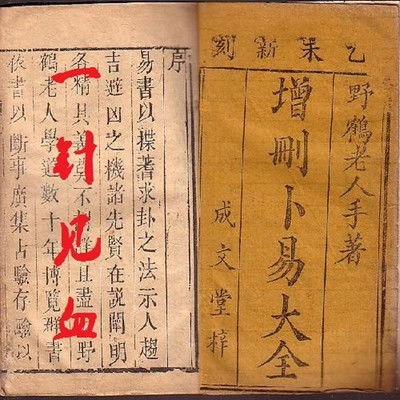 乙未新刻
野鶴老人手著
增刪卜易大全
成文堂梓
序
易書以揲蓍求卦之法示人趨
吉避凶之機諸先賢在説闡明
各精其義不詳且盡野
鶴老人學道數十年博覽群書
依書以斷事廣集占驗存驗以
一针见血